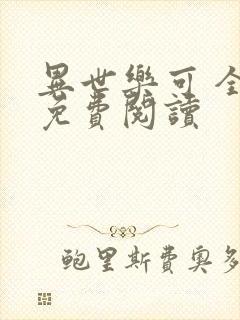 異世樂可 全
免費閱讀
鮑里斯費奧多